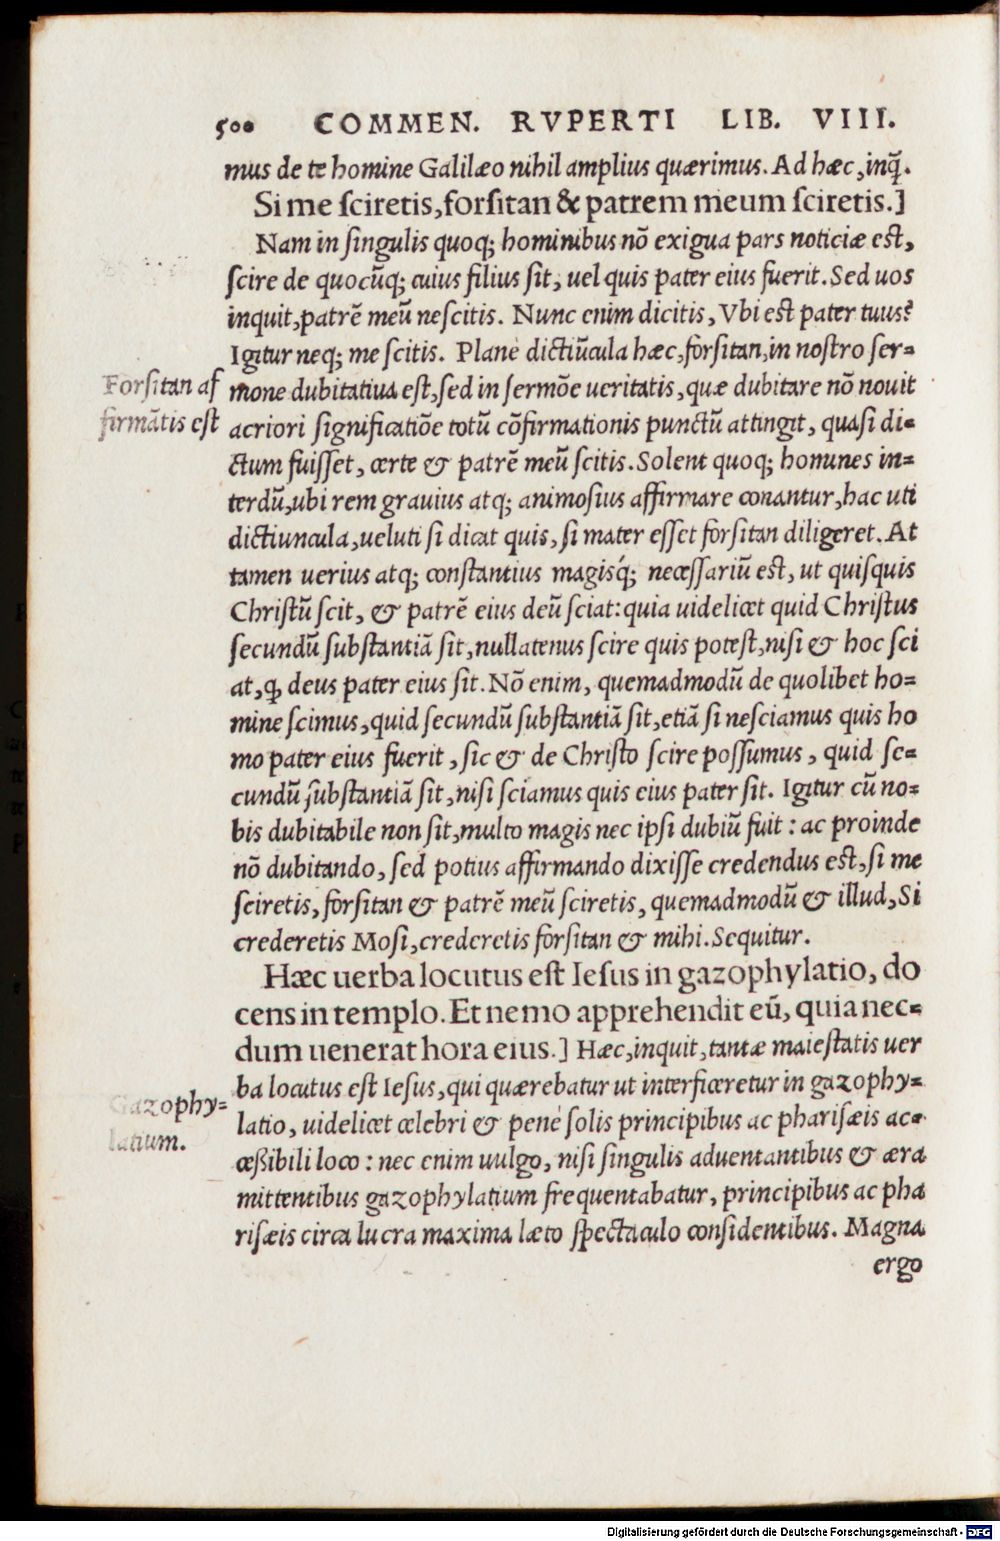 500 COMMEN. RVPERTI LIB. VIII.
mus de te homine Galilæo nihil amplius quærimus. Ad hæc, inq̃.
Si me ſciretis, forſitan & patrem meum ſciretis.]
Nam in ſingulis quoq; hominibus nõ exigua pars noticiæ eſt,
ſcire de quocũq; cuius filius ſit, uel quis pater eius fuerit. Sed uos
inquit, patrẽ meũ neſcitis. Nunc enim dicitis, Vbi eſt pater tuus?
Igitur neq; me ſcitis. Planè dictiũcula hæc, forſitan, in noſtro ſer=
Forſitan af
mone dubitatiua eſt, ſed in ſermõe ueritatis, quæ dubitare nõ nouit
firmãtis eſt
acriori ſignificatiõe totũ cõfirmationis punctũ attingit, quaſi di=
ctum fuiſſet, certe & patrẽ meũ ſcitis. Solent quoq; homines in=
terdũ, ubi rem grauius atq; animoſius affirmare conantur, hac uti
dictiuncula, ueluti ſi dicat quis, ſi mater eſſet forſitan diligeret. At
tamen uerius atq; conſtantius magisq́; neceſſariũ eſt, ut quiſquis
Chriſtũ ſcit, & patrẽ eius deũ ſciat: quia uidelicet quid Chriſtus
ſecundũ ſubſtantiã ſit, nullatenus ſcire quis poteſt, niſi & hoc ſci
at, ꝙ deus pater eius ſit. Nõ enim, quemadmodũ de quolibet ho=
mine ſcimus, quid ſecundũ ſubſtantiã ſit, etiã ſi neſciamus quis ho
mo pater eius fuerit, ſic & de Chriſto ſcire poſſumus, quid ſe=
cundũ ſubſtantiã ſit, niſi ſciamus quis eius pater ſit. Igitur cũ no=
bis dubitabile non ſit, multo magis nec ipſi dubiũ fuit: ac proinde
nõ dubitando, ſed potius affirmando dixiſſe credendus eſt, ſi me
ſciretis, forſitan & patrẽ meũ ſciretis, quemadmodũ & illud, Si
crederetis Moſi, crederetis forſitan & mihi. Sequitur.
Hæc uerba locutus eſt Ieſus in gazophylatio, do
cens in templo. Et nemo apprehendit eũ, quia nec=
dum uenerat hora eius.] Hæc, inquit, tantæ maieſtatis uer
ba locutus eſt Ieſus, qui quærebatur ut interficeretur in gazophy=
Gazophy=
latio, uidelicet celebri & penè ſolis principibus ac phariſæis ac=
latium.
ceßibili loco: nec enim uulgo, niſi ſingulis aduentantibus & æra
mittentibus gazophylatium frequentabatur, principibus ac pha
riſæis circa lucra maxima læto ſpectaculo conſidentibus. Magna
ergo
Digitalisierung gefördert durch die Deutsche Forschungsgemeinschaft - DFG